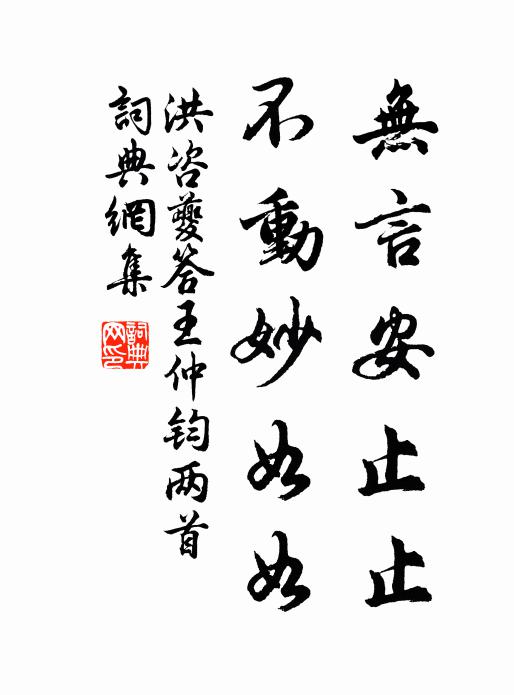 無言安止止
不動妙如如
洪咨夔答王仲钧两首
詞典網集
詞典網印